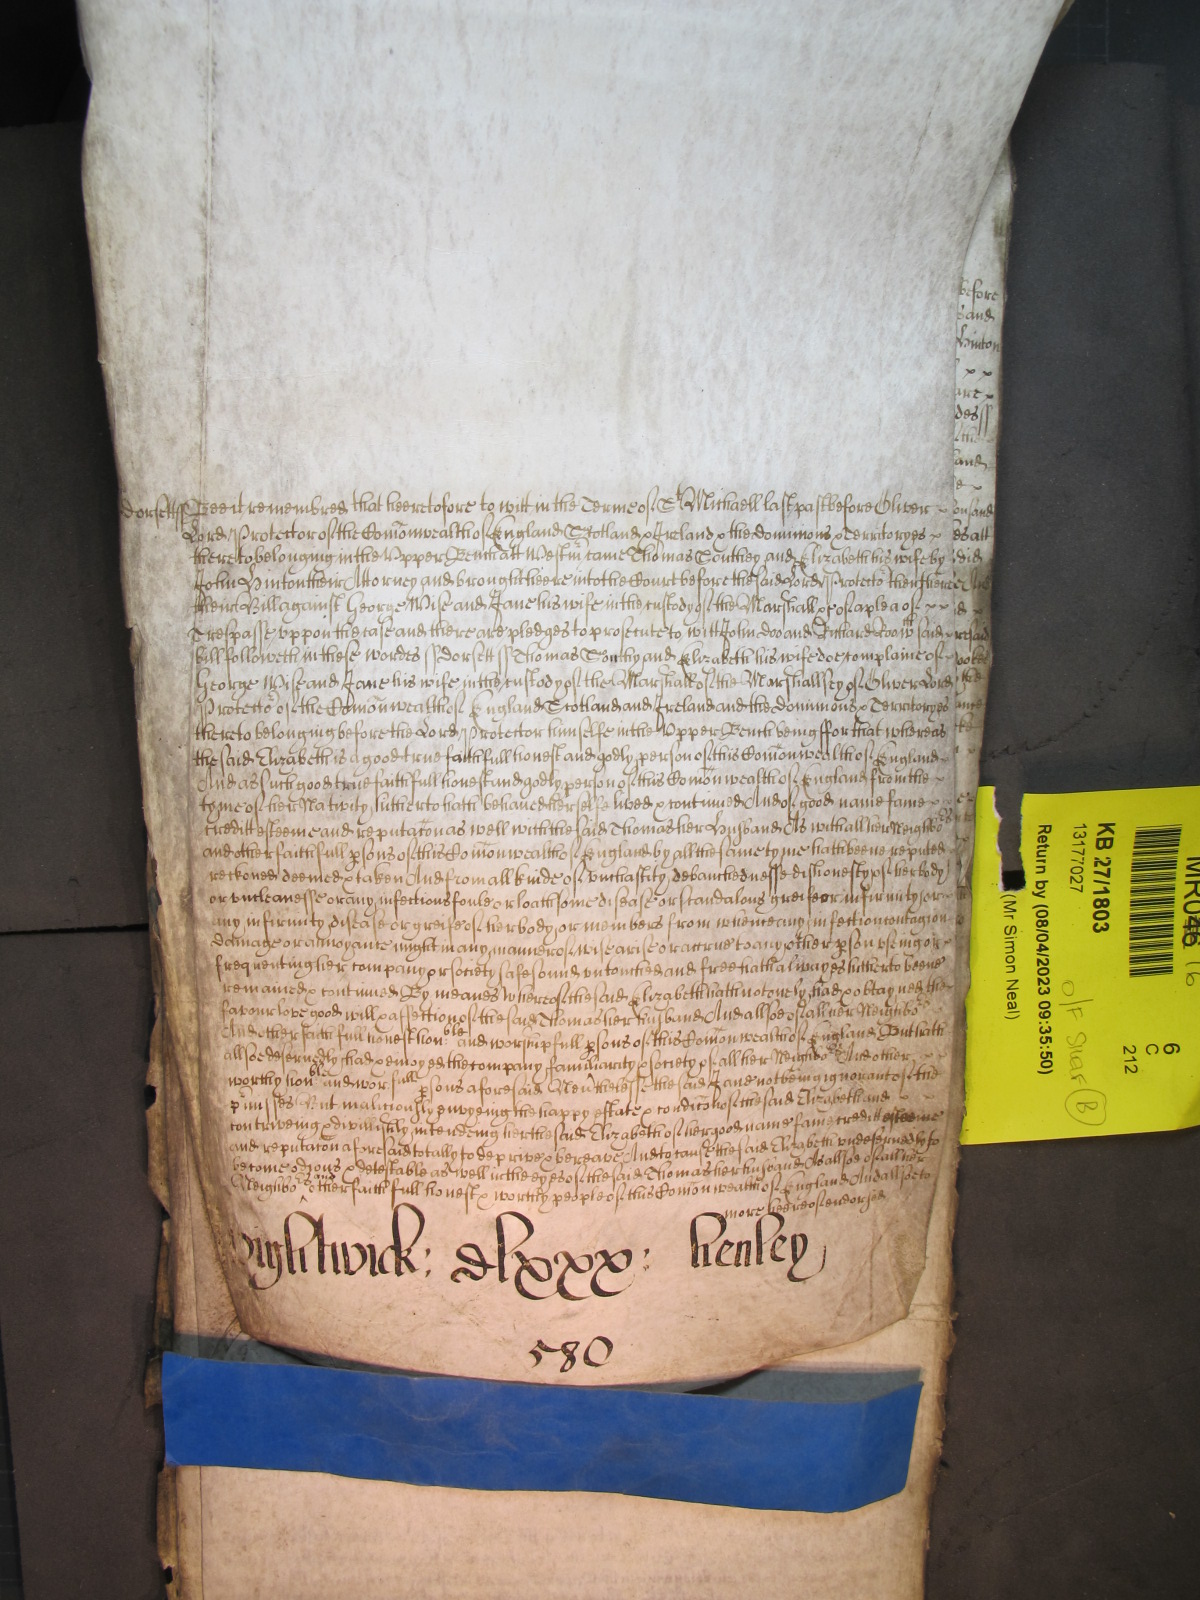 dorsett ss Bee it remembred that heeretofore to witt in the Terme of St Michaell last past before Oliver
Lord Protector of the Comonwealth of England Scotland & Ireland & the dominions & Territoryes x
thereto belonging in the Upper Bench att Westm came Thomas Southey and Elizabeth his wife by
John Hinton their Attorney and brought heere into the Court before the said Lord Protector then there
their Bill against George Wise and Jane his wife in the custody of the Marshall &c of a plea of x x
Trespasse uppon the case and there are pledges to prosecute to witt John Doo and Richard Roo w said
bill followeth in these wordes ss dorsett ss Thomas Southy and Elizabeth his wife doe complaine of
George Wise and Jane his wife in the custody of the Marshall of the Marshallsey of Oliver Lord
Protector of the Comonwealth of England Scotland and Ireland and the dominions & Territoryes
thereto belonging before the Lord Protector himselfe in the Upper Bench being ffor that whereas
the said Elizabeth is a good true faithfull honest and godly person of this Comonwealth of England
And as such good true faithfull honest and godly person of this Comonwealth of England from the
tyme of her Nativity hitherto hath behaved herselfe lived & continued And of good name fame
creditt esteeme and reputacon as well with the said Thomas her Husband As with all her Neighbo
and other faithfull psons of this Comonwealth of England by all the same tyme hath beene reputed
reckoned deemed & taken And from all kinde of unchastity debauchednesse dishonesty of her body
or uncleanesse or any infectious foule or loathsome disease or scandalous greife or infirmity or
any infirmity disease or greife of her body or members from whence any infection contagion
damage or annoyance might in any manner of wise arise or accrue to any other pson useing or
frequenting her company or society safe sound untouched and free hath alwayes hitherto beene
remained & continued By meanes whereof the said Elizabeth hath not onely had & obtayned the
favour love good will & affection of the said Thomas her husband And allsoe of all her Neighbo
And other faithfull honest hon ble and worshipfull psons of this Comonwealth of England But hath
allsoe deservedly had & enjoyed the company familiarity & society of all her Neighbo And other
worthy hon ble and worfull psons aforesaid Neuthelesse the said Jane not being ignorant of the
pmisses But maliciously envyeing the happy estate & condicon of the said Elizabeth and
contriveing & divelishly intendeing her the said Elizabeth of her good name fame creditt esteeme
and reputacon aforesaid totally to deprive & bereave And to cause the said Elizabeth undeservedly to
become odious & detestable as well in the eyes of the said Thomas her husband As allsoe of all her
Neighbo and other faithfull honest & worthy people of this Comonwealth of England And allsoe to
more heereof endorsed
Wightwick: dlxxx: henley
580
before
and
Hinton
x x
des
and
KB 27/1803
13177027
Return by (08/04/2023 09:35:50)
(Mr Simon Neal)
6
C
2112
O/F Shelf B